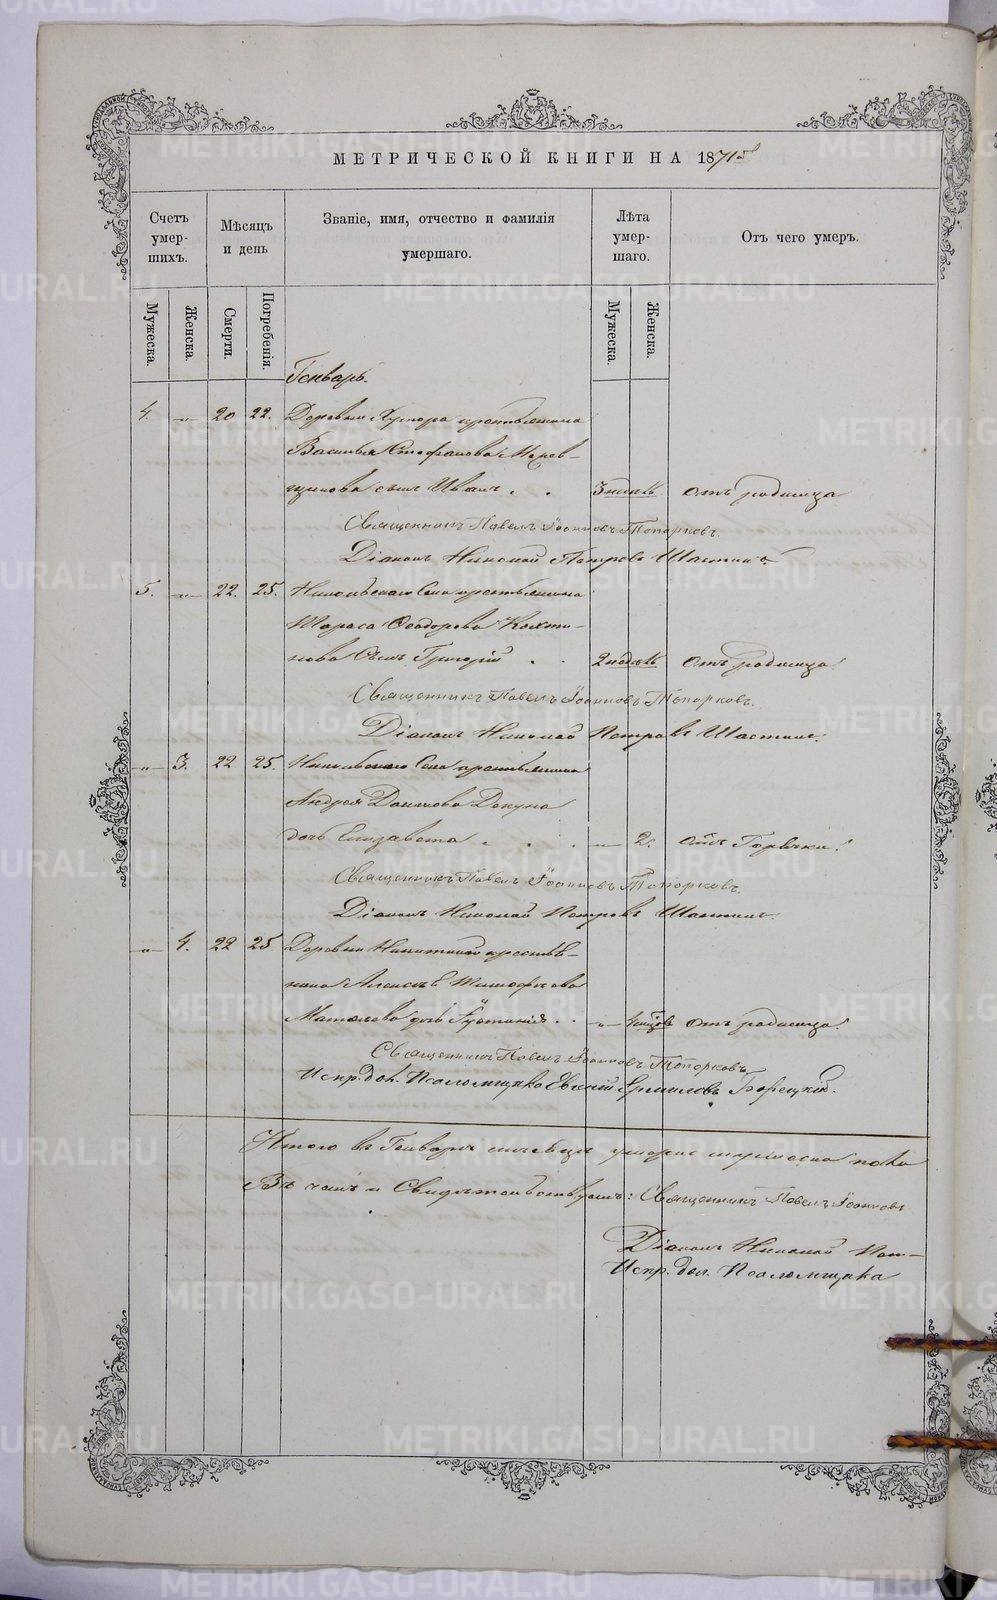 МЕТРИЧЕСКОЙ КНИГИ НА 18
Счетъ умер- шихъ.
Мѣсяцъ и день
Званіе, имя, отчество и фамилія умершаго.
Лѣта умер- шаго.
Отъ чего умеръ.
Мужеска.
Женска.
Смерти.
Погребенія.
Мужеска.
Женска.
Генварь.
4. 20 22. Деревни Хутора крестьянина
Василья Стефанова
сынъ Иванъ. 3 отъ родимца
Священникъ Павелъ Іоанновъ Топорковъ.
Діаконъ Николай Петровъ Шастинъ
5. 22. 25. Никольскаго Села крестьянина
Тараса Ѳеодорова
сынъ Григорій 2 недѣль отъ родимца.
Священникъ Павелъ Іоанновъ Топорковъ.
Діаконъ Николай Петровъ Шастинъ.
3. 22 25. Никольскаго Села крестьянина
Андрея Данилова
дочь Елизавета 2. отъ Горячки.
Священникъ Павелъ Іоанновъ Топорковъ.
Діаконъ Николай Петровъ Шастинъ.
4. 22 25 Деревни крестья-
нина Алексѣя Тимофѣева
дочь Іустинія отъ родимца.
Священникъ Павелъ Іоанновъ Топорковъ
Испр. дол. Псаломщика Евгеній Ермиловъ Борецкій.
Итого въ Генварѣ мѣсяцѣ умерло мужеска пола
Въ чемъ и Свидѣтельствуемъ: Священникъ Павелъ Іоанновъ
Діаконъ Николай Пет-
Испр. дол. Псаломщика
METRIKI.GASO-URAL.RU